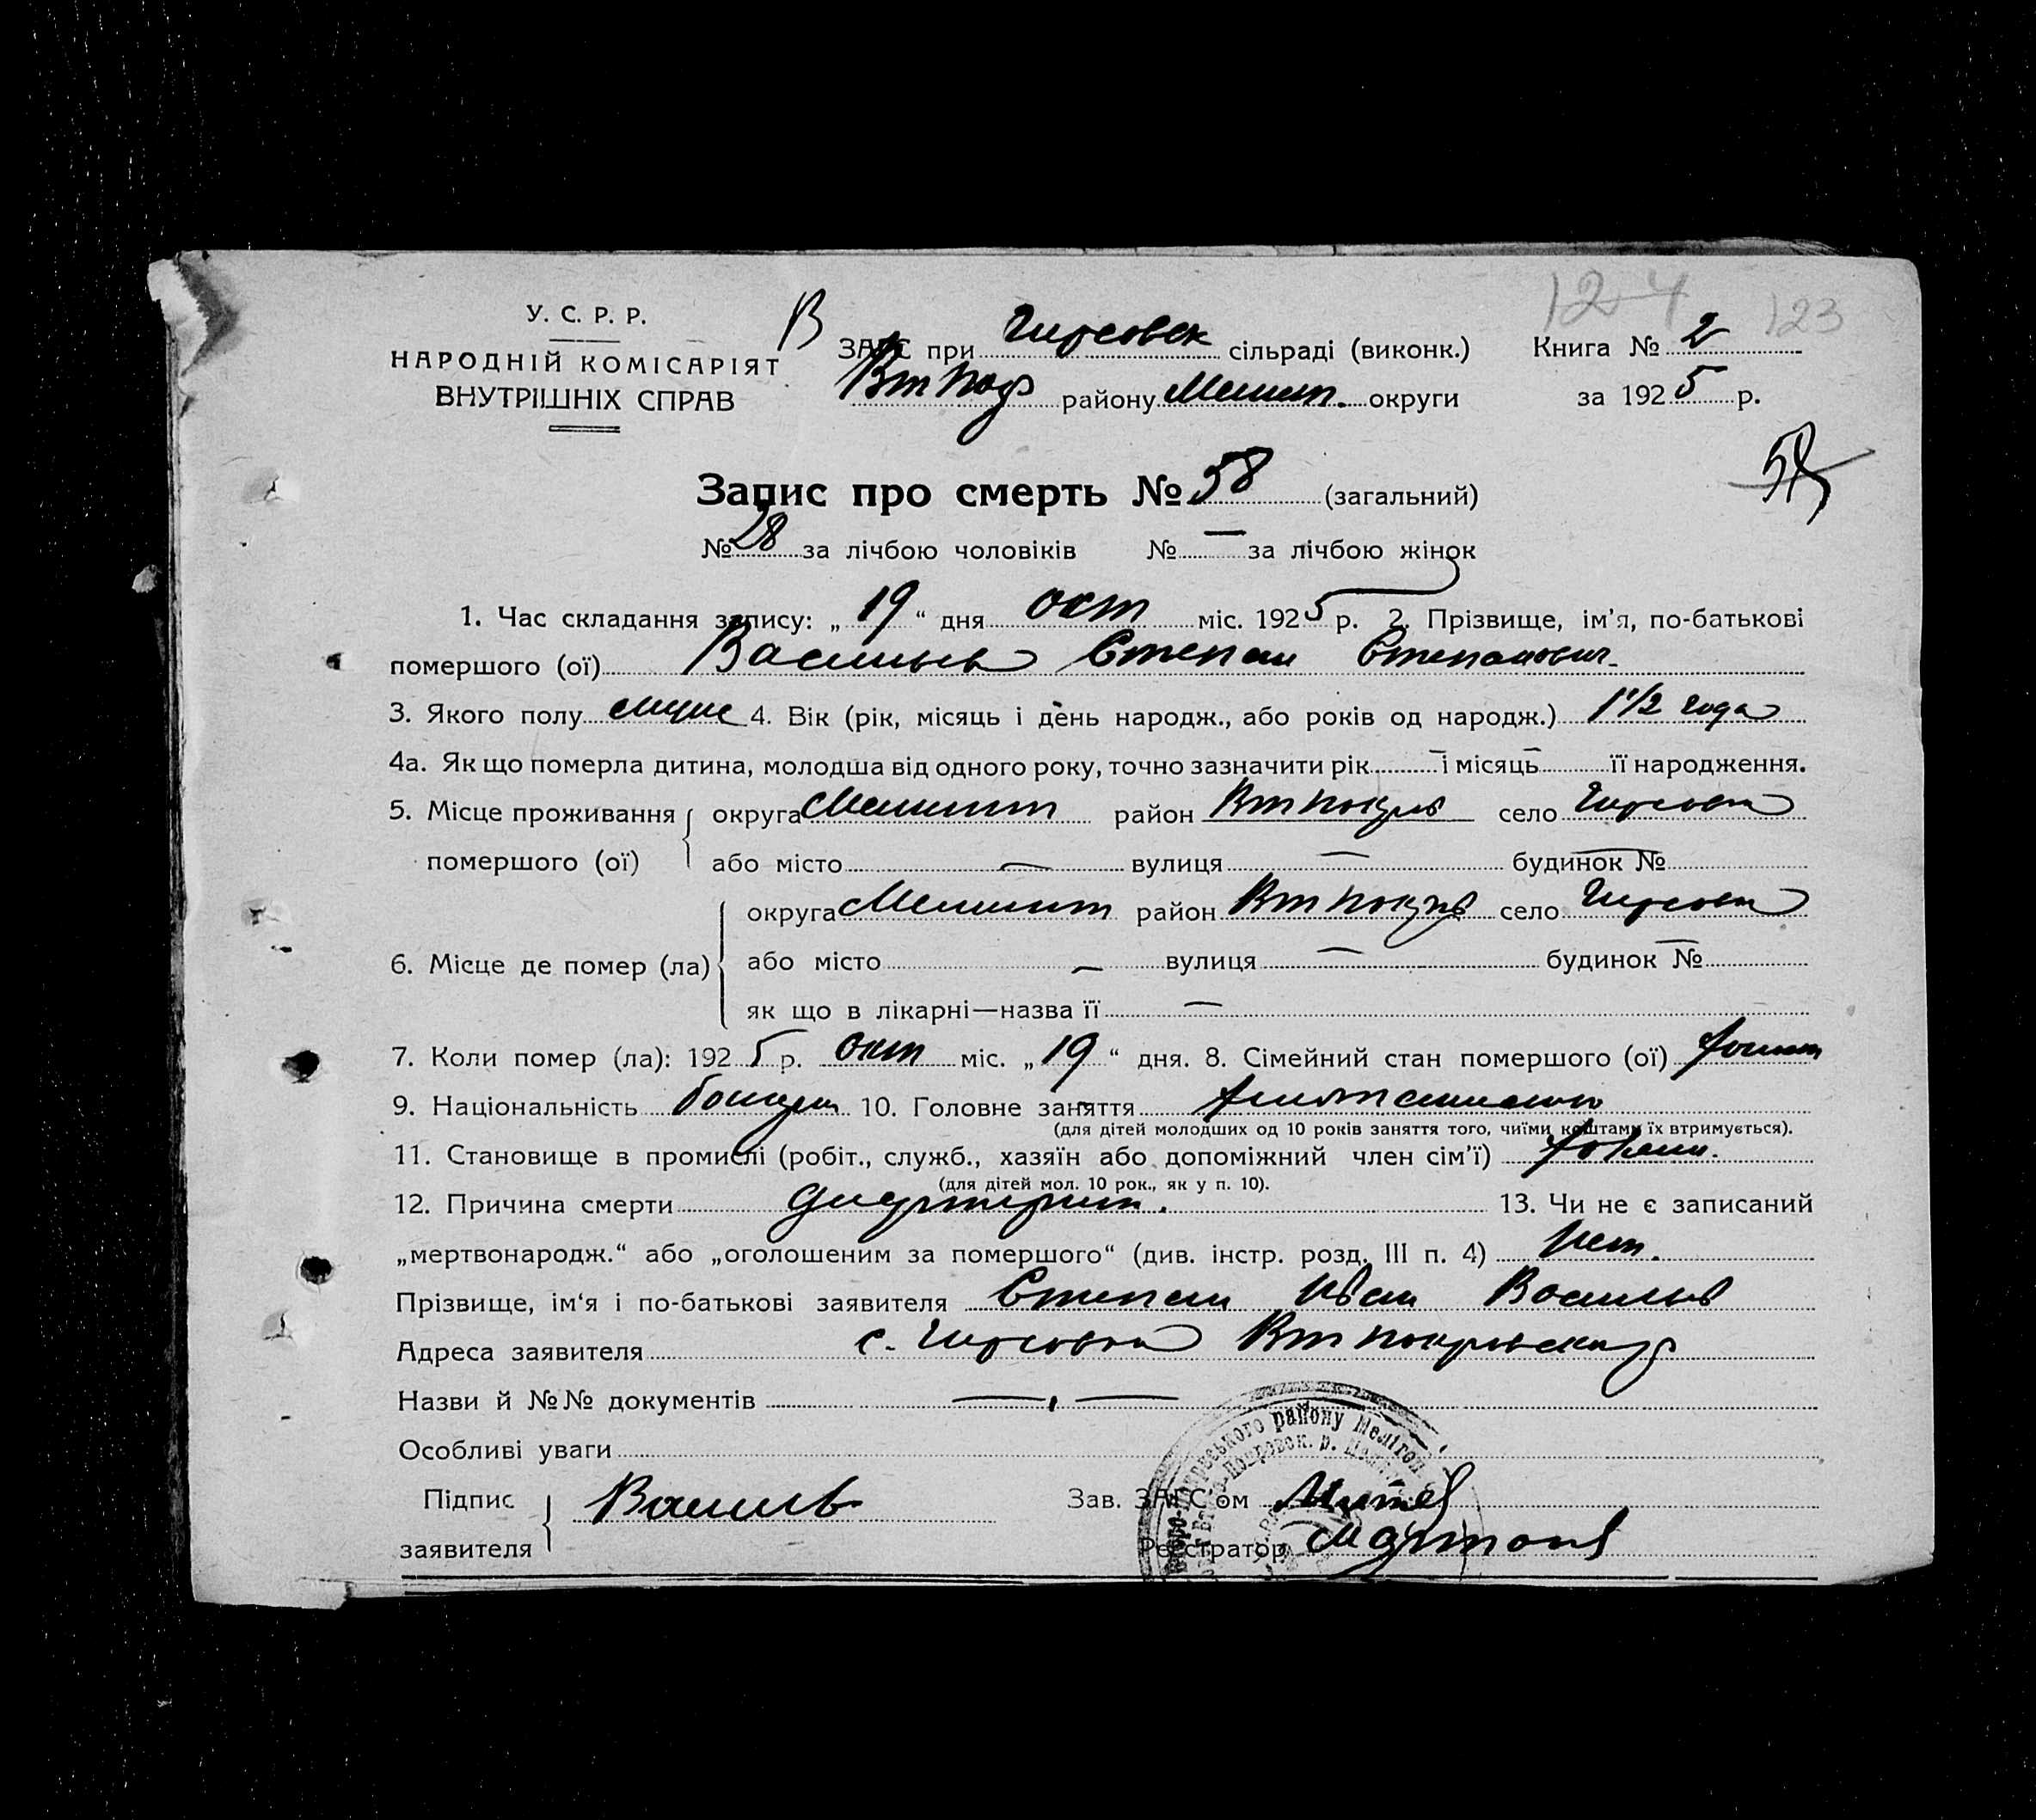 124 123
У. С. Р. Р.
НАРОДНІЙ КОМІСАРІЯТ
ВНУТРІШНІХ СПРАВ
В
ЗАГС при Гирсовск сільраді (виконк.) Книга № 2
Вт Покр району Мелит. округи за 1925 р.
58
Запис про смерть № 58 (загальний)
№ 28 за лічбою чоловіків № — за лічбою жінок
1. Час складання запису: „19“ дня окт міс. 1925 р. 2. Прізвище, ім'я, по-батькові
помершого (ої) Васильев Степан Степанович
3. Якого полу муж 4. Вік (рік, місяць і день народж., або років од народж.) 1 1/2 года
4а. Як що померла дитина, молодша від одного року, точно зазначити рік — і місяць — її народження.
5. Місце проживання округа Мелитоп район Вт Покров село Гирсовка
помершого (ої) або місто — вулиця — будинок № —
округа Мелитоп район Вт Покров село Гирсовка
6. Місце де помер (ла) або місто — вулиця — будинок № —
як що в лікарні—назва її —
7. Коли помер (ла): 1925 р. окт міс. „19“ дня. 8. Сімейний стан помершого (ої)
9. Національність болгарин 10. Головне заняття
(для дітей молодших од 10 років заняття того, чиїми коштами їх втримується).
11. Становище в промислі (робіт., служб., хазяїн або допоміжний член сім'ї)
(для дітей мол. 10 рок., як у п. 10).
12. Причина смерти дифтерит. 13. Чи не є записаний
„мертвонародж.“ або „оголошеним за помершого“ (див. інстр. розд. III п. 4) Нет.
Прізвище, ім'я і по-батькові заявителя Степан Иван Васильев
Адреса заявителя с. Гирсовка Вт Покровского
Назви й №№ документів — , —
Особливі уваги
Підпис Васильев Зав. ЗАГС'ом
заявителя Реєстратор
району Мелітоп